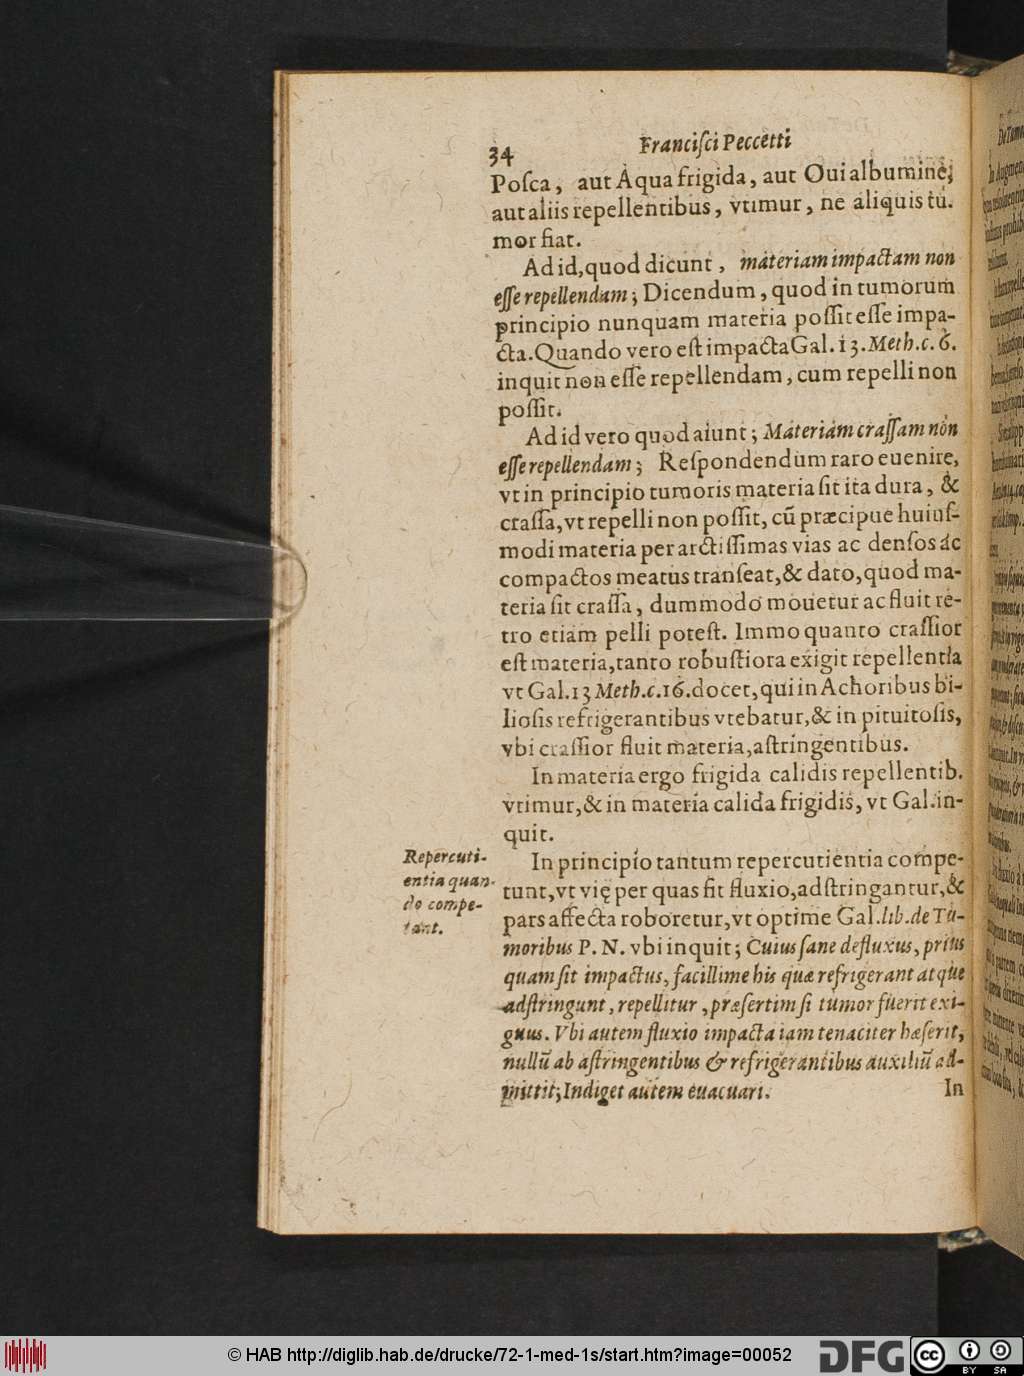 34 Franciſci Peccetti
Poſca, aut Aqua frigida, aut Oui albumine;
aut aliis repellentibus, vtimur, ne aliquis tu.
mor fiat.
Ad id, quod dicunt, materiam impactam non
eſſe repellendam; Dicendum, quod in tumorum
principio nunquam materia poſſit eſſe impa-
cta. Quando vero eſt impacta Gal. 13. Meth. c. 6.
inquit non eſſe repellendam, cum repelli non
poſſit.
Ad id vero quod aiunt; Materiam craſſam non
eſſe repellendam; Reſpondendum raro euenire,
vt in principio tumoris materia ſit ita dura, &
craſſa, vt repelli non poſſit, cū præcipue huiuſ-
modi materia per arctiſſimas vias ac denſos ac
compactos meatus tranſeat, & dato, quod ma-
teria ſit craſſa, dummodo mouetur ac fluit re-
tro etiam pelli poteſt. Immo quanto craſſior
eſt materia, tanto robuſtiora exigit repellentia
vt Gal. 13 Meth. c. 16. docet, qui in Achoribus bi-
lioſis refrigerantibus vtebatur, & in pituitoſis,
vbi craſſior fluit materia, aſtringentibus.
In materia ergo frigida calidis repellentib.
vtimur, & in materia calida frigidis, vt Gal. in-
quit.
Repercuti-
entia quan-
do compe-
tant.
In principio tantum repercutientia compe-
tunt, vt vię per quas fit fluxio, adſtringantur, &
pars affecta roboretur, vt optime Gal. lib. de Tu-
moribus P. N. vbi inquit; Cuius ſane defluxus, prius
quam ſit impactus, facillime his quæ refrigerant atque
adſtringunt, repellitur, præſertim ſi tumor fuerit exi-
guus. Vbi autem fluxio impacta iam tenaciter hæſerit,
nullū ab aſtringentibus & refrigerantibus auxiliū ad-
mittit; Indiget autem euacuari.
In
© HAB http://diglib.hab.de/drucke/72-1-med-1s/start.htm?image=00052
DFG
cc BY SA